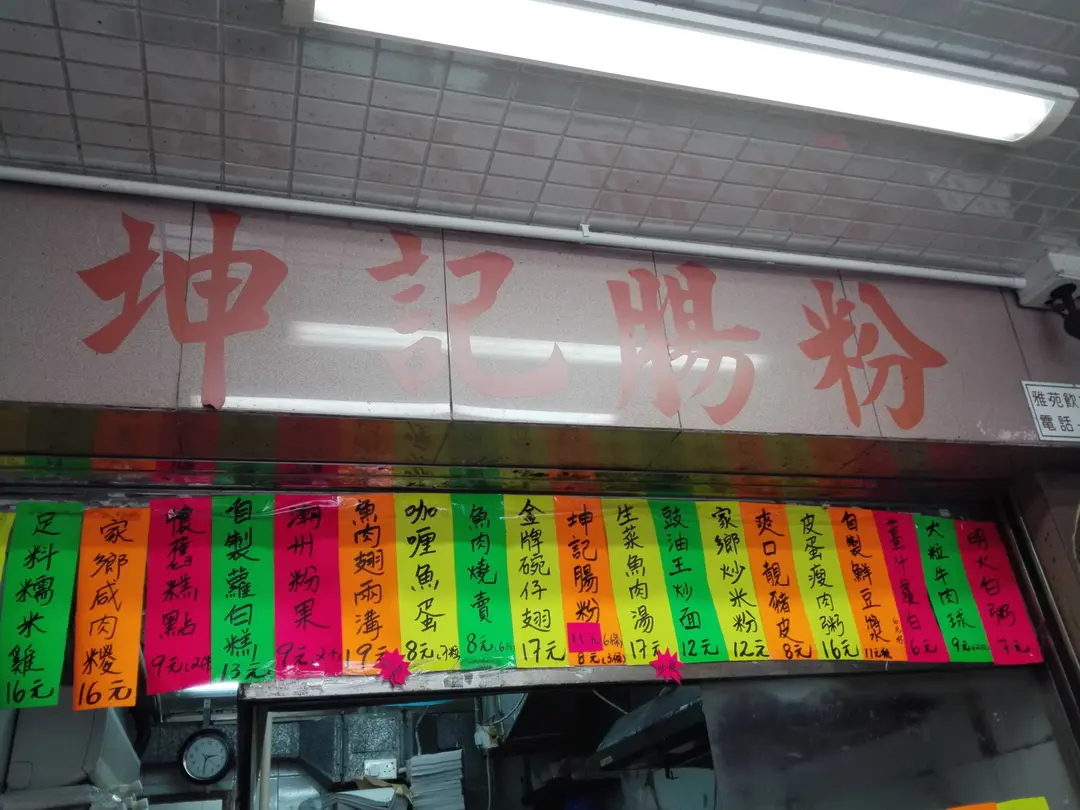 坤記腸粉
雅苑飲
電話
足料糯米雞 16元
家鄉咸肉糭 16元
懷舊糕點 9元
自製蘿白糕 13元
潮州粉果 9元
魚肉翅兩溝 19元
咖喱魚蛋 8元
魚肉燒賣 8元
金牌碗仔翅 17元
坤記腸粉 11元 6條 8元 3條
生菜魚肉湯 17元
豉油王炒面 12元
家鄉炒米粉 12元
爽口靚豬皮 8元
皮蛋瘦肉粥 16元
自製鮮豆漿 11元
薑汁蘿白 6元
大粒牛肉球 9元
明火白粥 7元